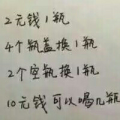 2元钱1瓶
4个瓶盖换1瓶
2个空瓶换1瓶
10元钱可以喝几瓶